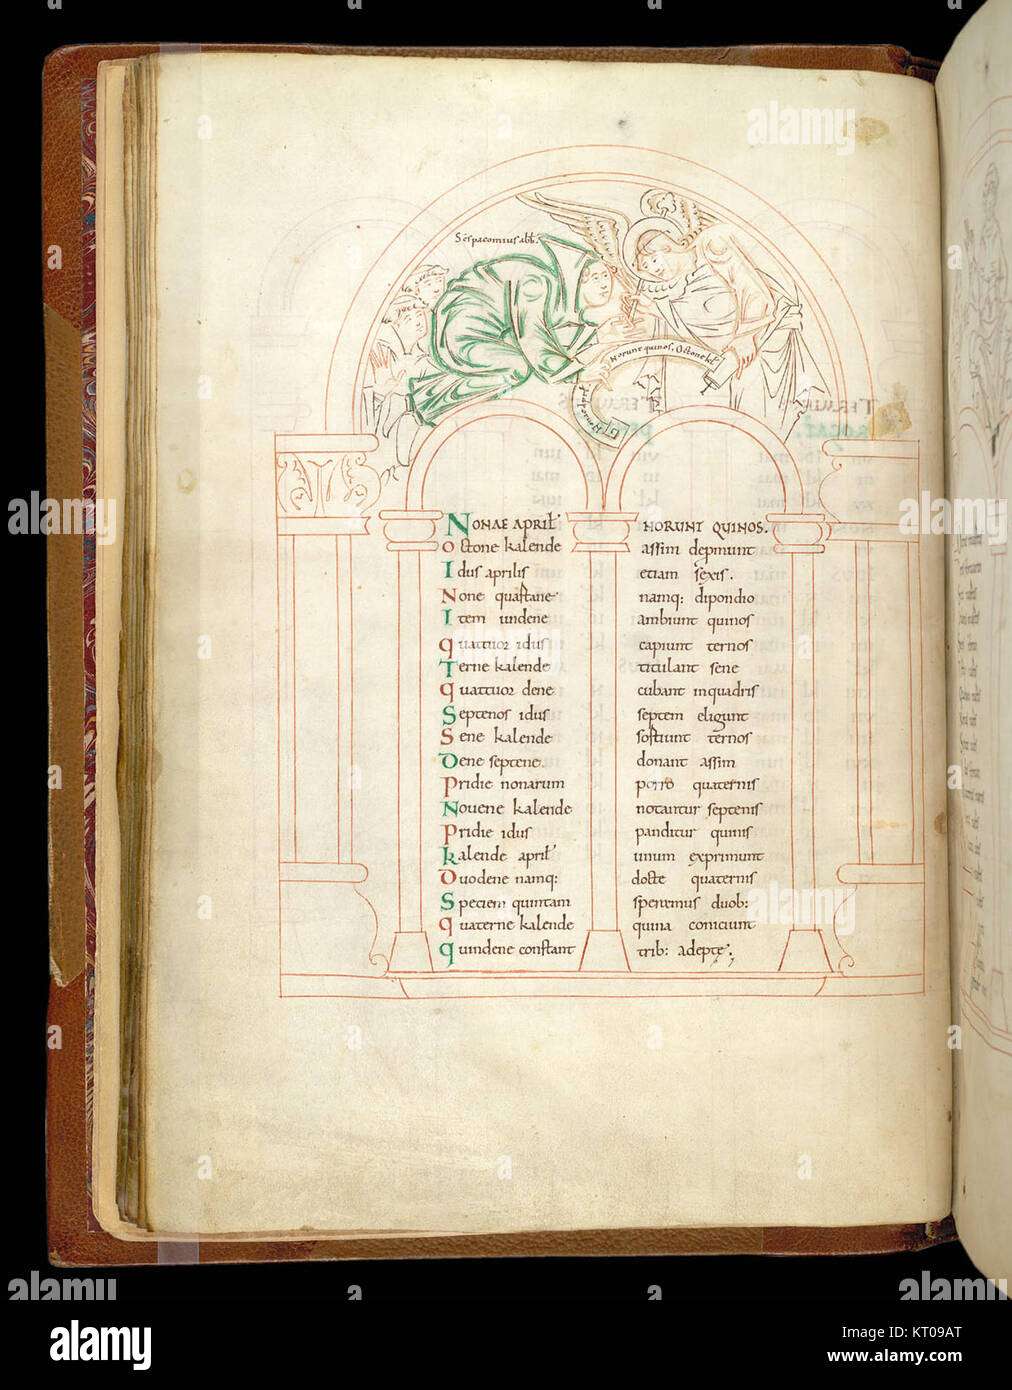 Scs pacomius abb.
Norunt quinos. Octone kl
Nonae April
NONAE APRIL NORUNT QUINOS.
Octone kalende assim depmunt
Idus aprilis etiam sexis.
None quastane namq: dipondio
Item undene ambiunt quinos
Quattuor idus capiunt ternos
Terne kalende titulant sene
Quattuor dene cubant inquadris
Septenos idus septem eligunt
Sene kalende sostiunt ternos
Dene septene. donant assim
Pridie nonarum porro quaternis
Novene kalende notantur septenis
Pridie idus panditur quinis
Kalende april unum exprimunt
Duodene namq: docte quaternis
Speciem quintam speremus duob:
Quaterne kalende quina coniciunt
Quindene constant trib: adepte.
alamy
Image ID: KT09AT
www.alamy.com